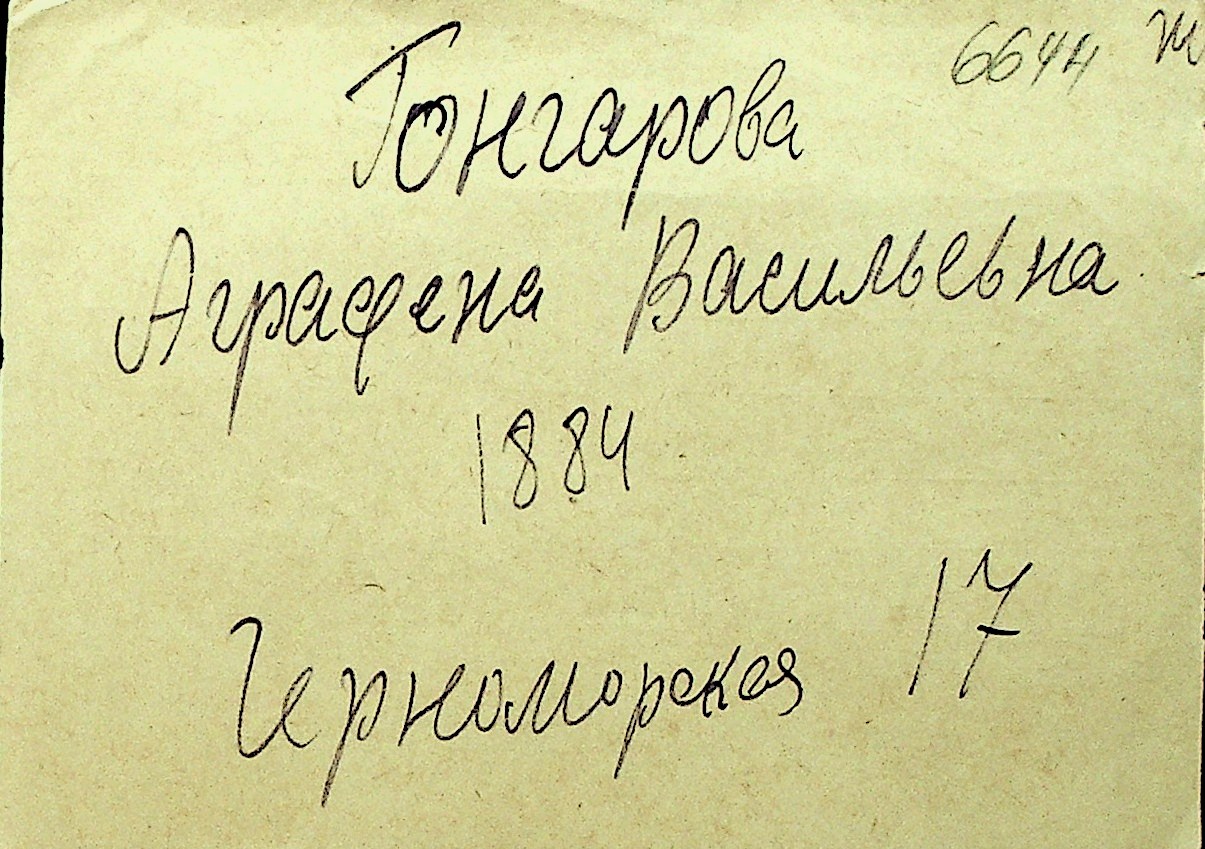 6644
Гончарова
Аграфена Васильевна
1884
Черноморская 17